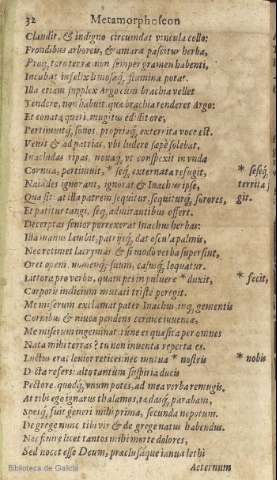 32 Metamorphoseon
Claudit, & indigno circumdat vincula collo:
Frondibus arboreis, & amara pascitur herba,
Proq, toro terræ non semper gramen habenti,
Incubat infelix limosaq, flumina potat.
Illa etiam supplex Argo cum brachia vellet
Tendere, non habuit quæ brachia tenderet Argo:
Et conata queri, mugitus edidit ore,
Pertimuitq, sonos, propriaq, exterrita voce est.
Venit & ad patrias, vbi ludere sæpè solebat,
Inachidas ripas, nouaq, vt conspexit in vnda
Cornua, pertimuit, * seq, externata refugit, * seseq,
Naiades ignorant, ignorat & Inachus ipse, territa
Quæ sit: at illa patrem sequitur, sequiturq, sorores, git.
Et patitur tangi, seq, admirantibus offert.
Decerptas senior porrexerat Inachus herbas:
Illa manus lambit patrijq, dat oscula palmis,
Nec retinet lacrymas & si modo verba supersint,
Oret opem, nomenq, suum, casusq, loquatur.
Littera pro verbis, quam pes in puluere * duxit, * fecit,
Corporis indicium mutati triste peregit.
Me miserum exclamat pater Inachus, inq, gementis
Cornibus & niuea pendens ceruice iuuencæ,
Me miserum ingeminat: tune es quæsita per omnes
Nata mihi terras? tu non inuenta reperta es.
Luctus eras leuior retices: nec mutua * nostris * nobis
Dicta refers: alto tantùm suspiria ducis
Pectore, quodq, vnum potes, ad mea verba remugis.
At tibi ego ignarus thalamos, tædasq, parabam,
Spesq, fuit generi mihi prima, secunda nepotum.
De grege nunc tibi vir & de grege natus habendus.
Nec finire licet tantos mihi morte dolores,
Sed nocet esse Deum, præclusaque ianua lethi
Aeternum
Biblioteca de Galicia